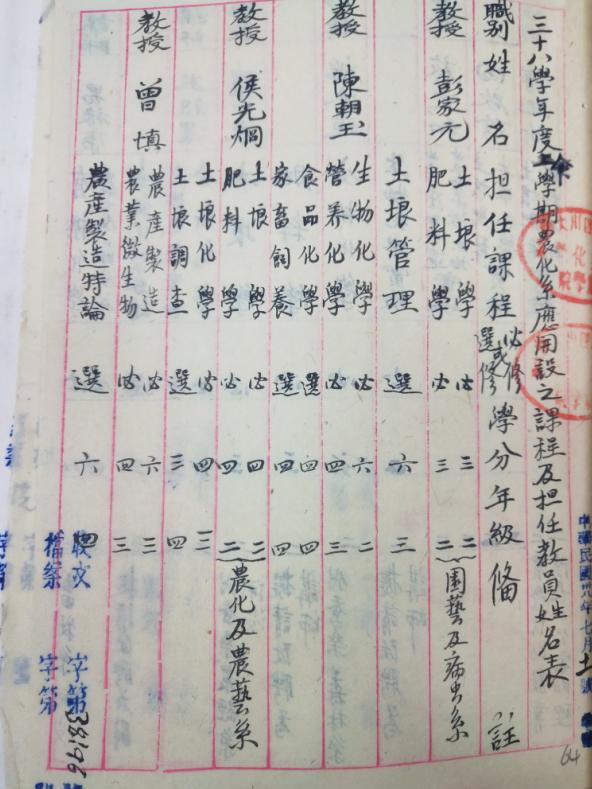 三十八學年度上學期農化系應開設之課程及担任教員姓名表
職別 姓名 担任課程 必修或選修 學分 年級 俻註
教授 彭家元 土壤學 必 三 二 園藝及病虫系
肥料學 必 三 二
土壤管理 選 六 三
教授 陳朝玉 生物化學 必 六 二
營养化學 必 四 三
食品化學 選 四 四
家畜飼養 選 四 四
教授 侯光炯 土壤學 必 四 二 農化及農藝系
肥料學 必 四 二
土壤化學 必 四 三
土壤調查 選 三 四
教授 曾慎 農產製造 必 六 三
農業微生物 必 四 三
農產製造特論 選 六 四
中華民國卅八年七月
收文 字第38196
檔案 字第
64